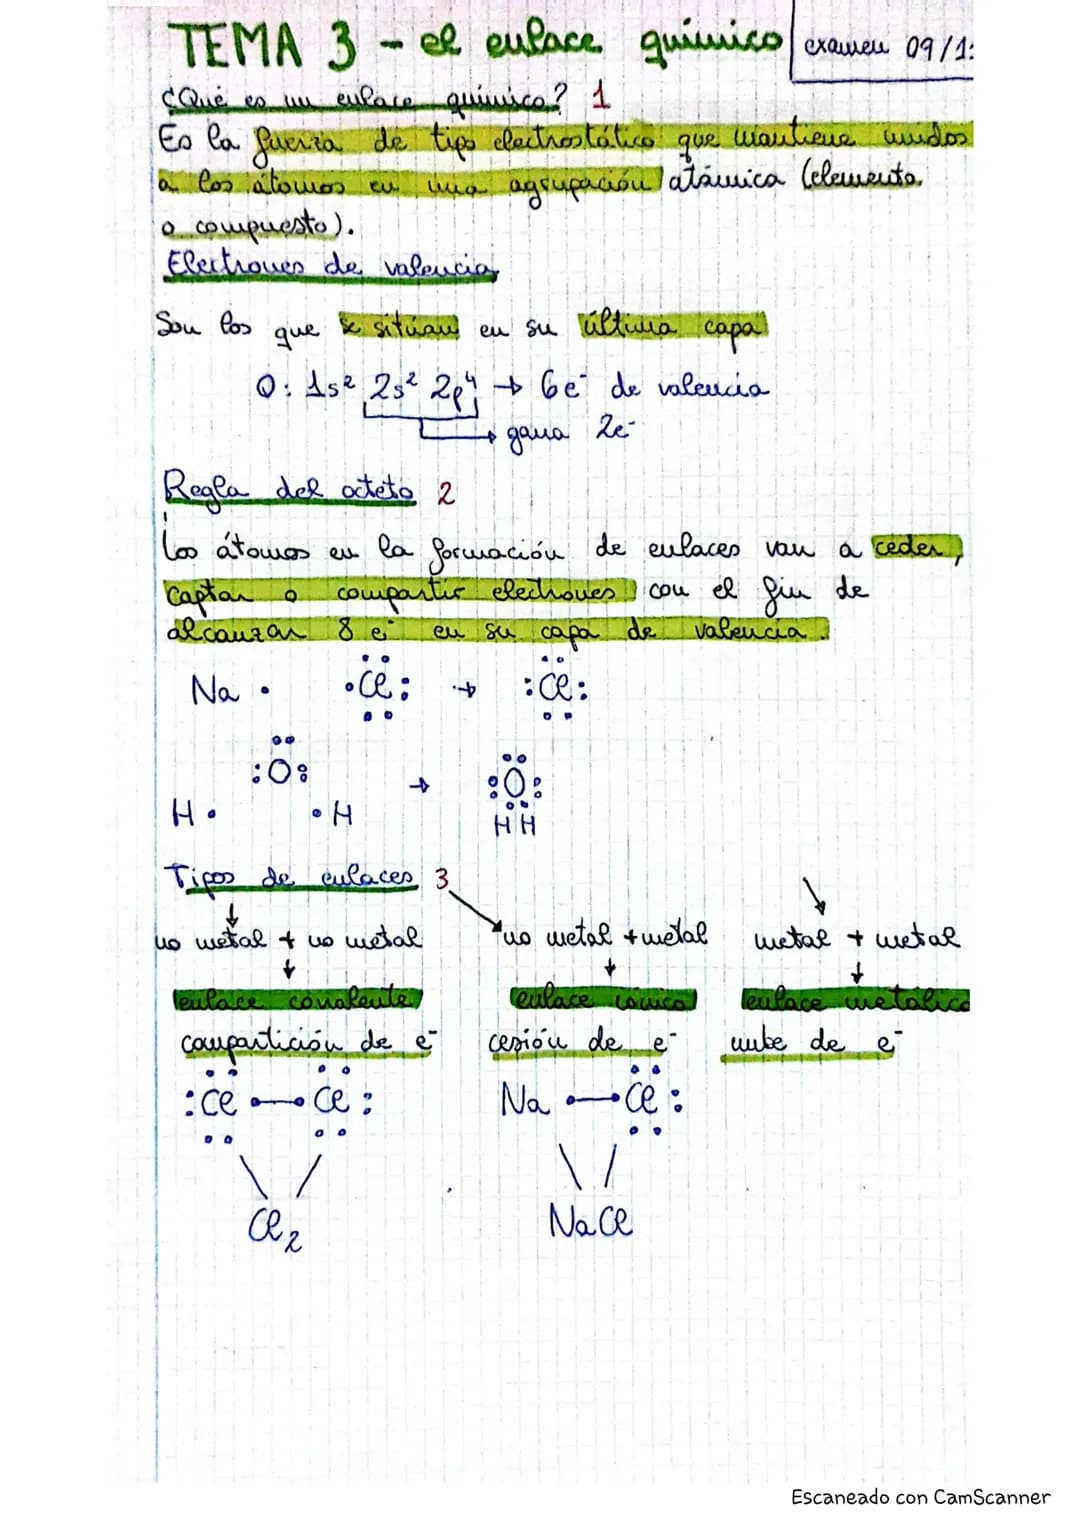 TEMA 3 - el enlace químico
examen 09/1
¿Qué es un enlace químico? 1
Es la fuerza de tipo electrostático que mantiene unidos
a los átomos en una agrupación atámica (elemento
o compuesto).
Electrones de valencia
Son los que se sitúan en su última capa
O: 1s² 2s² 2p⁴ → 6e⁻ de valencia
→ gana 2e⁻
Regla del octeto 2
Los átomos en la formación de enlaces van a ceder,
captar o compartir electrones con el fin de
alcanzar 8 e⁻ en su capa de valencia.
Na · ·Cl: → :Cl:
:O:
H · · H → :O:
H H
Tipos de enlaces 3
no metal + no metal no metal + metal metal + metal
enlace covalente enlace iónico enlace metálico
compartición de e⁻ cesión de e⁻ nube de e⁻
:Cl — Cl: Na — Cl:
Cl₂ NaCl
Escaneado con CamScanner